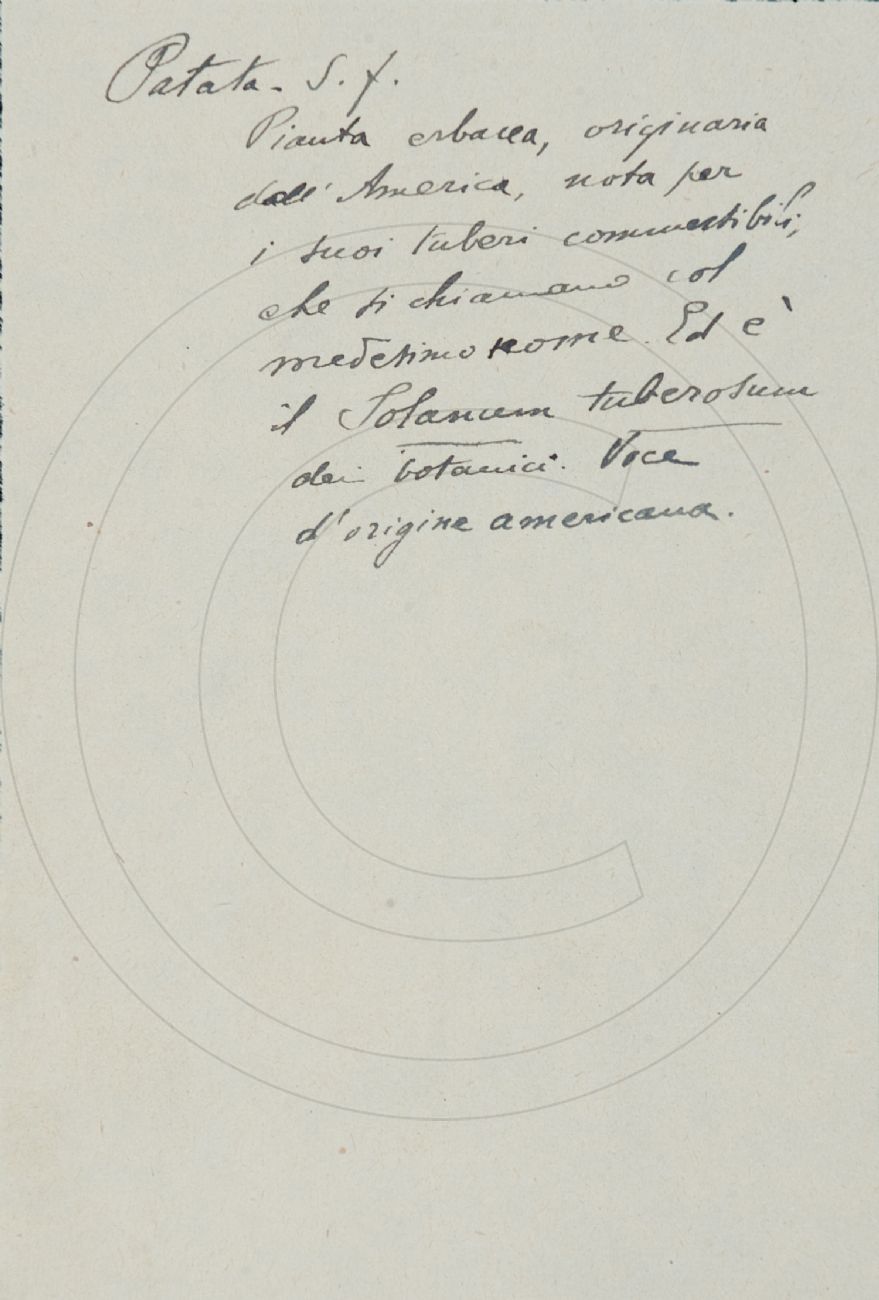 Patata - S. f.
Pianta erbacea, originaria
dall' America, nota per
i suoi tuberi commestibili,
che si chiamano col
medesimo nome. Ed è
il Solanum tuberosum
dei botanici. Voce
d'origine americana.